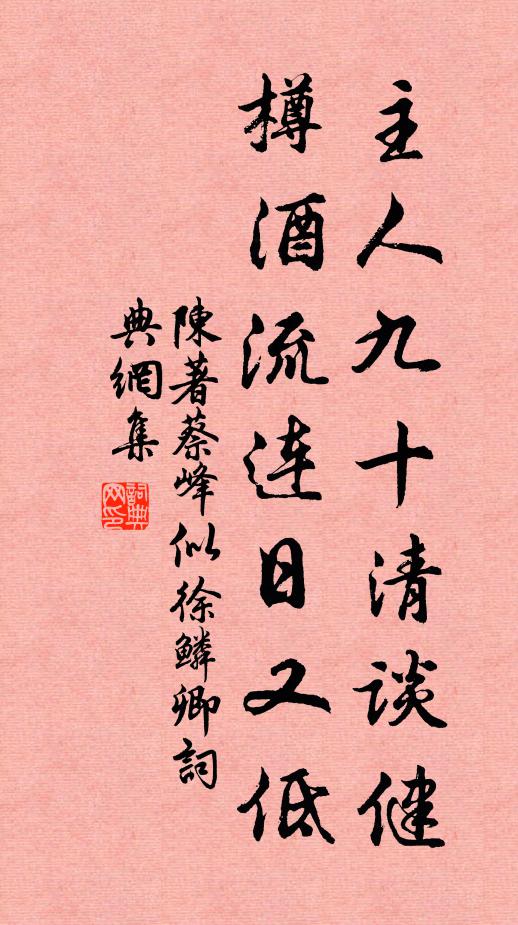 主人九十清談健
樽酒流连日又低
陳著蔡峰似徐鱗卿詞
典網集
詞典
网印